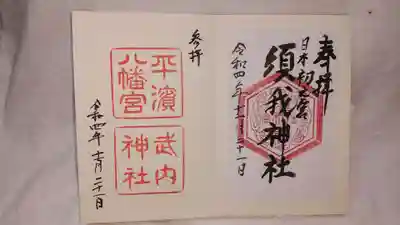 奉拝
日本初之宮
須我神社
令和四年十一月二十一日
参拝
平濱
八幡宮
武内
神社
令和四年十一月二十一日